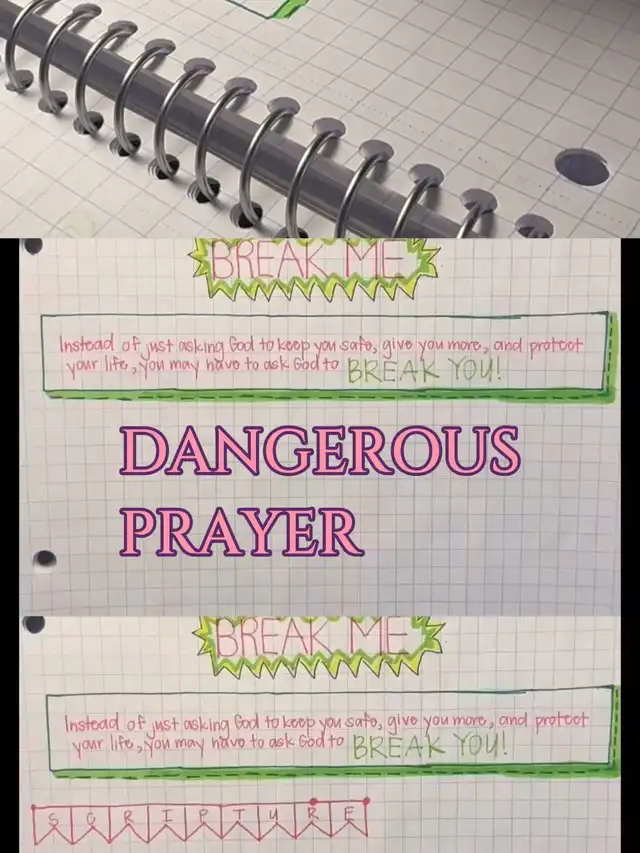 BREAK ME
Instead of just asking God to keep you safe, give you more, and protect
your life, you may have to ask God to BREAK YOU!
DANGEROUS
PRAYER
BREAK ME
Instead of just asking God to keep you safe, give you more, and protect
your life, you may have to ask God to BREAK YOU!
SCRIPTURE